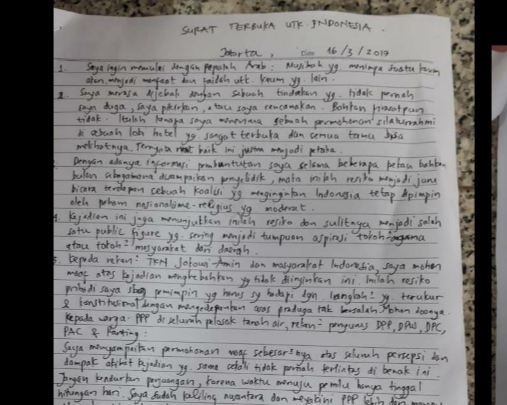 SURAT TERBUKA UTK INDONESIA.
Jakarta, Date 16/3/2019
1. Saya ingin memulai dengan pepatah Arab: Musibah yg. menimpa suatu kaum
akan menjadi manfaat dan faidah utk. kaum yg. lain.
2. Saya merasa dijebak dengan sebuah tindakan yg. tidak pernah
saya duga, saya pikirkan, atau saya rencanakan. Bahkan firasatpun
tidak. Itulah kenapa saya menerima sebuah permohonan silaturrahmi
di sebuah lobi hotel yg sangat terbuka dan semua tamu bisa
melihatnya. Ternyata niat baik ini justru menjadi petaka.
Dengan adanya informasi pembuntutan saya selama beberapa pekan bahkan
bulan sebagaimana disampaikan penyelidik, maka inilah resiko menjadi juru
bicara terdepan sebuah koalisi yg menginginkan Indonesia tetap dipimpin
oleh paham nasionalisme-religius yg moderat.
Kejadian ini juga menunjukkan inilah resiko dan sulitnya menjadi salah
satu public figure yg sering menjadi tumpuan aspirasi tokoh² agama
atau tokoh² masyarakat dari daerah.
5. Kepada rekan² TKN Jokowi-Amin dan masyarakat Indonesia, saya mohon
maaf atas kejadian menghebohkan yg tidak diinginkan ini. Inilah resiko
pribadi saya sbg pemimpin yg harus sy hadapi dgn langkah² yg terukur
& konstitusional dengan mengedepankan azas praduga tak bersalah. Mohon doanya.
Kepada warga PPP di seluruh pelosok tanah air, rekan² pengurus DPP, DPW, DPC,
PAC & Ranting:
Saya menyampaikan permohonan maaf sebesar²nya atas seluruh persepsi dan
dampak akibat kejadian yg sama sekali tidak pernah terlintas di benak ini
Jangan kendurkan perjuangan, karena waktu menuju pemilu hanya tinggal
hitungan hari. Saya sudah keliling nusantara dan meyakini PPP